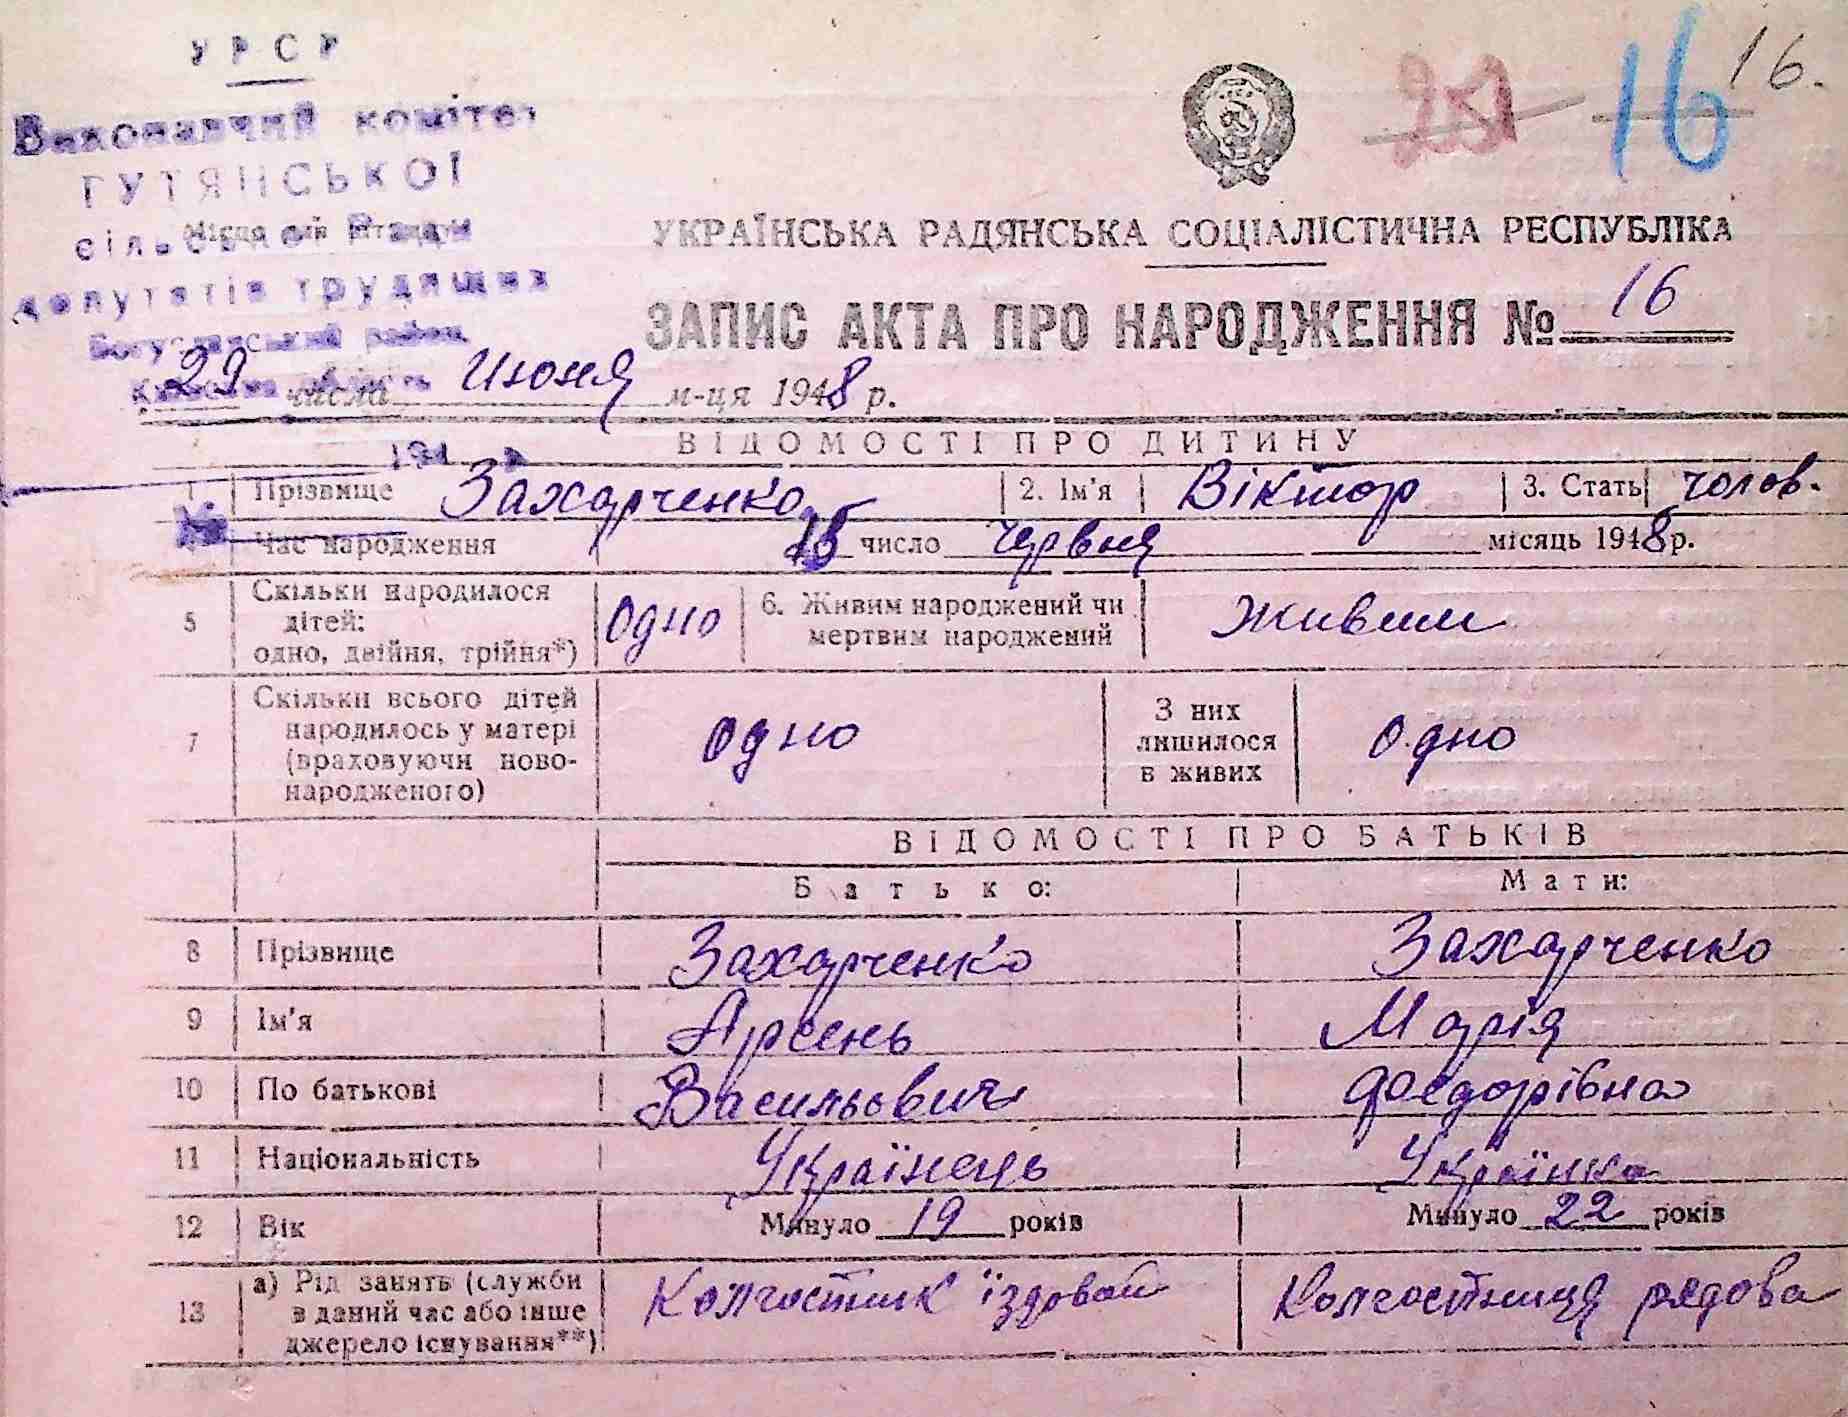 УРСР
Виконавчий комітет
ГУТЯНСЬКОЇ
сільської Ради
Місце для штампу
депутатів трудящих
Богуславський район
Київська область
194
16
16.
УКРАЇНСЬКА РАДЯНСЬКА СОЦІАЛІСТИЧНА РЕСПУБЛІКА
ЗАПИС АКТА ПРО НАРОДЖЕННЯ № 16
29 числа Июня м-ця 1948 р.
ВІДОМОСТІ ПРО ДИТИНУ
1. Прізвище Захарченко 2. Ім'я Віктор 3. Стать чолов.
Час народження 15 число червня місяць 1948 р.
5 Скільки народилося дітей: одно, двійня, трійня*) Одно 6. Живим народжений чи мертвим народжений Живим
7 Скільки всього дітей народилось у матері (враховуючи ново-народженого) одно З них лишилося в живих одно
ВІДОМОСТІ ПРО БАТЬКІВ
Батько: Мати:
8 Прізвище Захарченко Захарченко
9 Ім'я Арсень Марія
10 По батькові Васильович Фоєдорівна
11 Національність Українець Українка
12 Вік Минуло 19 років Минуло 22 років
13 а) Рід занять (служби в даний час або інше джерело існування**) Колгостник їздовой Колгостниця рядова